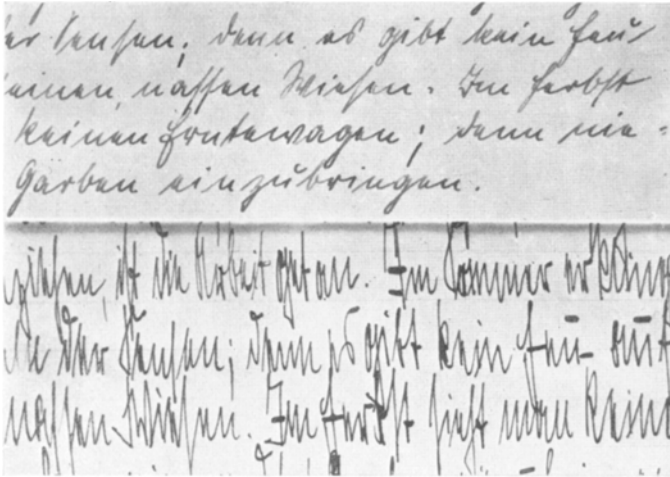 er Sensen; denn es gibt kein Heu
einen, nassen Wiesen. Im Herbst
keinen Erntewagen; denn nie-
Garben einzubringen.
ziehen, ist die Arbeit getan. Im Sommer erkling
der Sensen; denn es gibt kein Heu auf
nassen Wiesen. Im Herbst sieht man keine